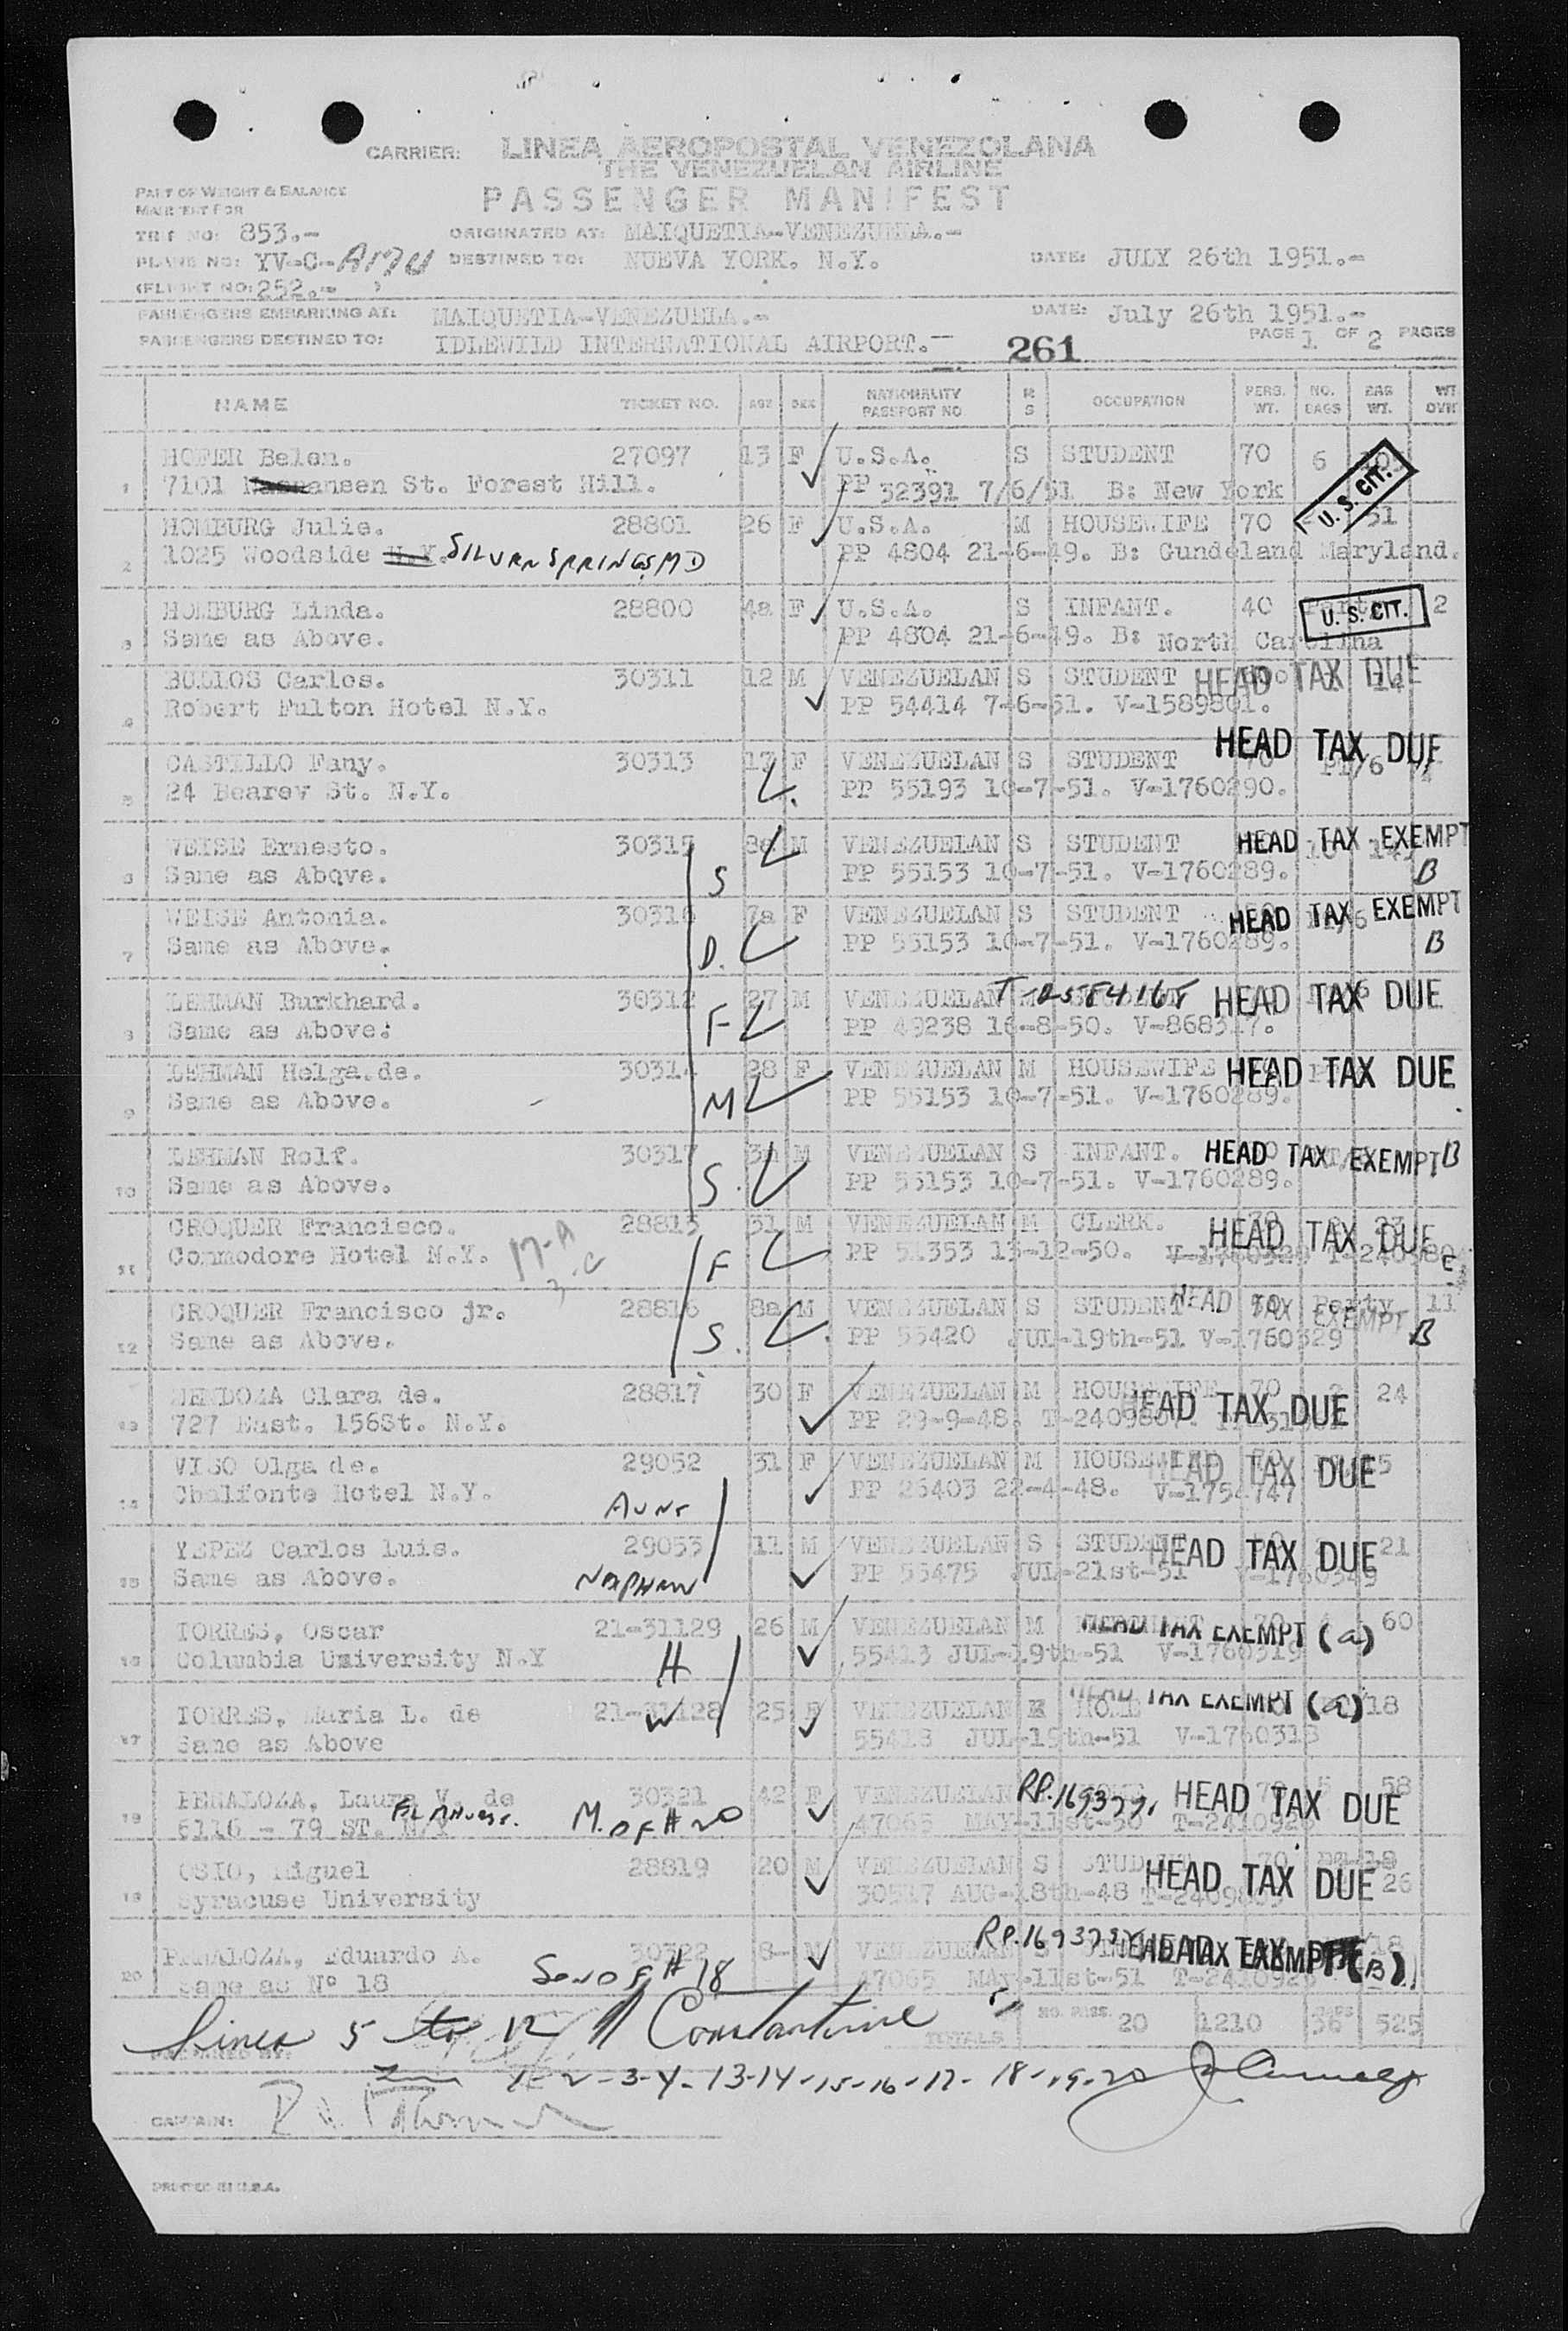 CARRIER: LINEA AEROPOSTAL VENEZOLANA
THE VENEZUELAN AIRLINE
PART OF WEIGHT & BALANCE
PASSENGER MANIFEST
TRIP NO: 853.- ORIGINATED AT: MAIQUETIA-VENEZUELA.-
PLANE NO: YV-C- DESTINED TO: NUEVA YORK. N.Y. DATE: JULY 26th 1951.-
(FLIGHT NO: 252.- )
PASSENGERS EMBARKING AT: MAIQUETIA-VENEZUELA.- DATE: July 26th 1951.-
PASSENGERS DESTINED TO: IDLEWILD INTERNATIONAL AIRPORT.- 261 PAGE 1 OF 2 PAGES
NAME TICKET NO. AGE SEX NATIONALITY PASSPORT NO M S OCCUPATION PERS. WT. NO. BAGS BAG WT. WT OVR
HOFER Belen. 27097 13 F U.S.A. S STUDENT 70 6
1 7101 St. Forest Hill. PP 32391 7/6/51 B: New York U. S. CIT.
HOMBURG Julie. 28801 26 F U.S.A. M HOUSEWIFE 70 51
2 1025 Woodside N.Y. SILVRN SPRINGS MD PP 4804 21-6-49. B: Gundeland Maryland.
HOMBURG Linda. 28800 4a F U.S.A. S INFANT. 40 U. S. CIT. 2
3 Same as Above. PP 4804 21-6-49. B: North Carolina
BULLOS Carlos. 30311 12 M VENEZUELAN S STUDENT HEAD TAX DUE
4 Robert Fulton Hotel N.Y. PP 54414 7-6-51. V-1589801.
CASTILLO Fany. 30313 17 F VENEZUELAN S STUDENT HEAD TAX DUE
5 24 Bearev St. N.Y. PP 55193 10-7-51. V-1760290.
WEISE Ernesto. 30315 8a M VENEZUELAN S STUDENT HEAD TAX EXEMPT
6 Same as Above. S PP 55153 10-7-51. V-1760289. B
WEISE Antonia. 30316 7a F VENEZUELAN S STUDENT HEAD TAX EXEMPT
7 Same as Above. D. PP 55153 10-7-51. V-1760289. B
LEHMAN Burkhard. 30312 27 M VENEZUELAN HEAD TAX DUE
8 Same as Above. F PP 49238 16-8-50. V-868317.
LEHMAN Helga.de. 30314 28 F VENEZUELAN M HOUSEWIFE HEAD TAX DUE
9 Same as Above. M PP 55153 10-7-51. V-1760289.
LEHMAN Rolf. 30317 3a M VENEZUELAN S INFANT. HEAD TAX EXEMPT B
10 Same as Above. S. PP 55153 10-7-51. V-1760289.
CROQUER Francisco. 28815 31 M VENEZUELAN M CLERK. HEAD TAX DUE
11 Commodore Hotel N.Y. F PP 51353 13-12-50.
CROQUER Francisco jr. 28816 8a M VENEZUELAN S STUDENT HEAD TAX EXEMPT 11
12 Same as Above. S. PP 55420 JUL-19th-51 V-1760329 B
MENDOZA Clara de. 28817 30 F VENEZUELAN M HOUSEWIFE 70 2 24
13 727 East. 156St. N.Y. PP 29-9-48. HEAD TAX DUE
VISO Olga de. 29052 31 F VENEZUELAN M HOUSEWIFE HEAD TAX DUE
14 Chalfonte Hotel N.Y. AUNT PP 26403 22-4-48. V-1754747
YEPEZ Carlos Luis. 29053 11 M VENEZUELAN S STUDENT HEAD TAX DUE 21
15 Same as Above. NEPHEW PP 55475 JUL-21st-51
TORRES, Oscar 21-31129 26 M VENEZUELAN M HEAD TAX EXEMPT (a) 60
16 Columbia University N.Y H 55413 JUL-19th-51 V-1760319
TORRES, Maria L. de 21-31128 25 F VENEZUELAN HOME HEAD TAX EXEMPT (a) 18
17 Same as Above W 55413 JUL-19th-51 V-1760318
PENALOZA, Laura V. de 30321 42 F VENEZUELAN HEAD TAX DUE 58
18 6116 - 79 ST. M. OF # 20 47065 MAY-11st-50
OSIO, Miguel 28819 20 M VENEZUELAN S HEAD TAX DUE 26
19 Syracuse University 30517 AUG-18th-48
PENALOZA, Eduardo A. 30322 8- M HEAD TAX EXEMPT (B) 18
20 Same as Nº 18 SON OF # 18 47065 MAY-11st-51
Lines 5 to 12 Constantine TOTALS NO. PASS. 20 1210 36 525
PREPARED BY:
2-3-4-13-14-15-16-17-18-19-20
CAPTAIN:
PRINTED IN U.S.A.